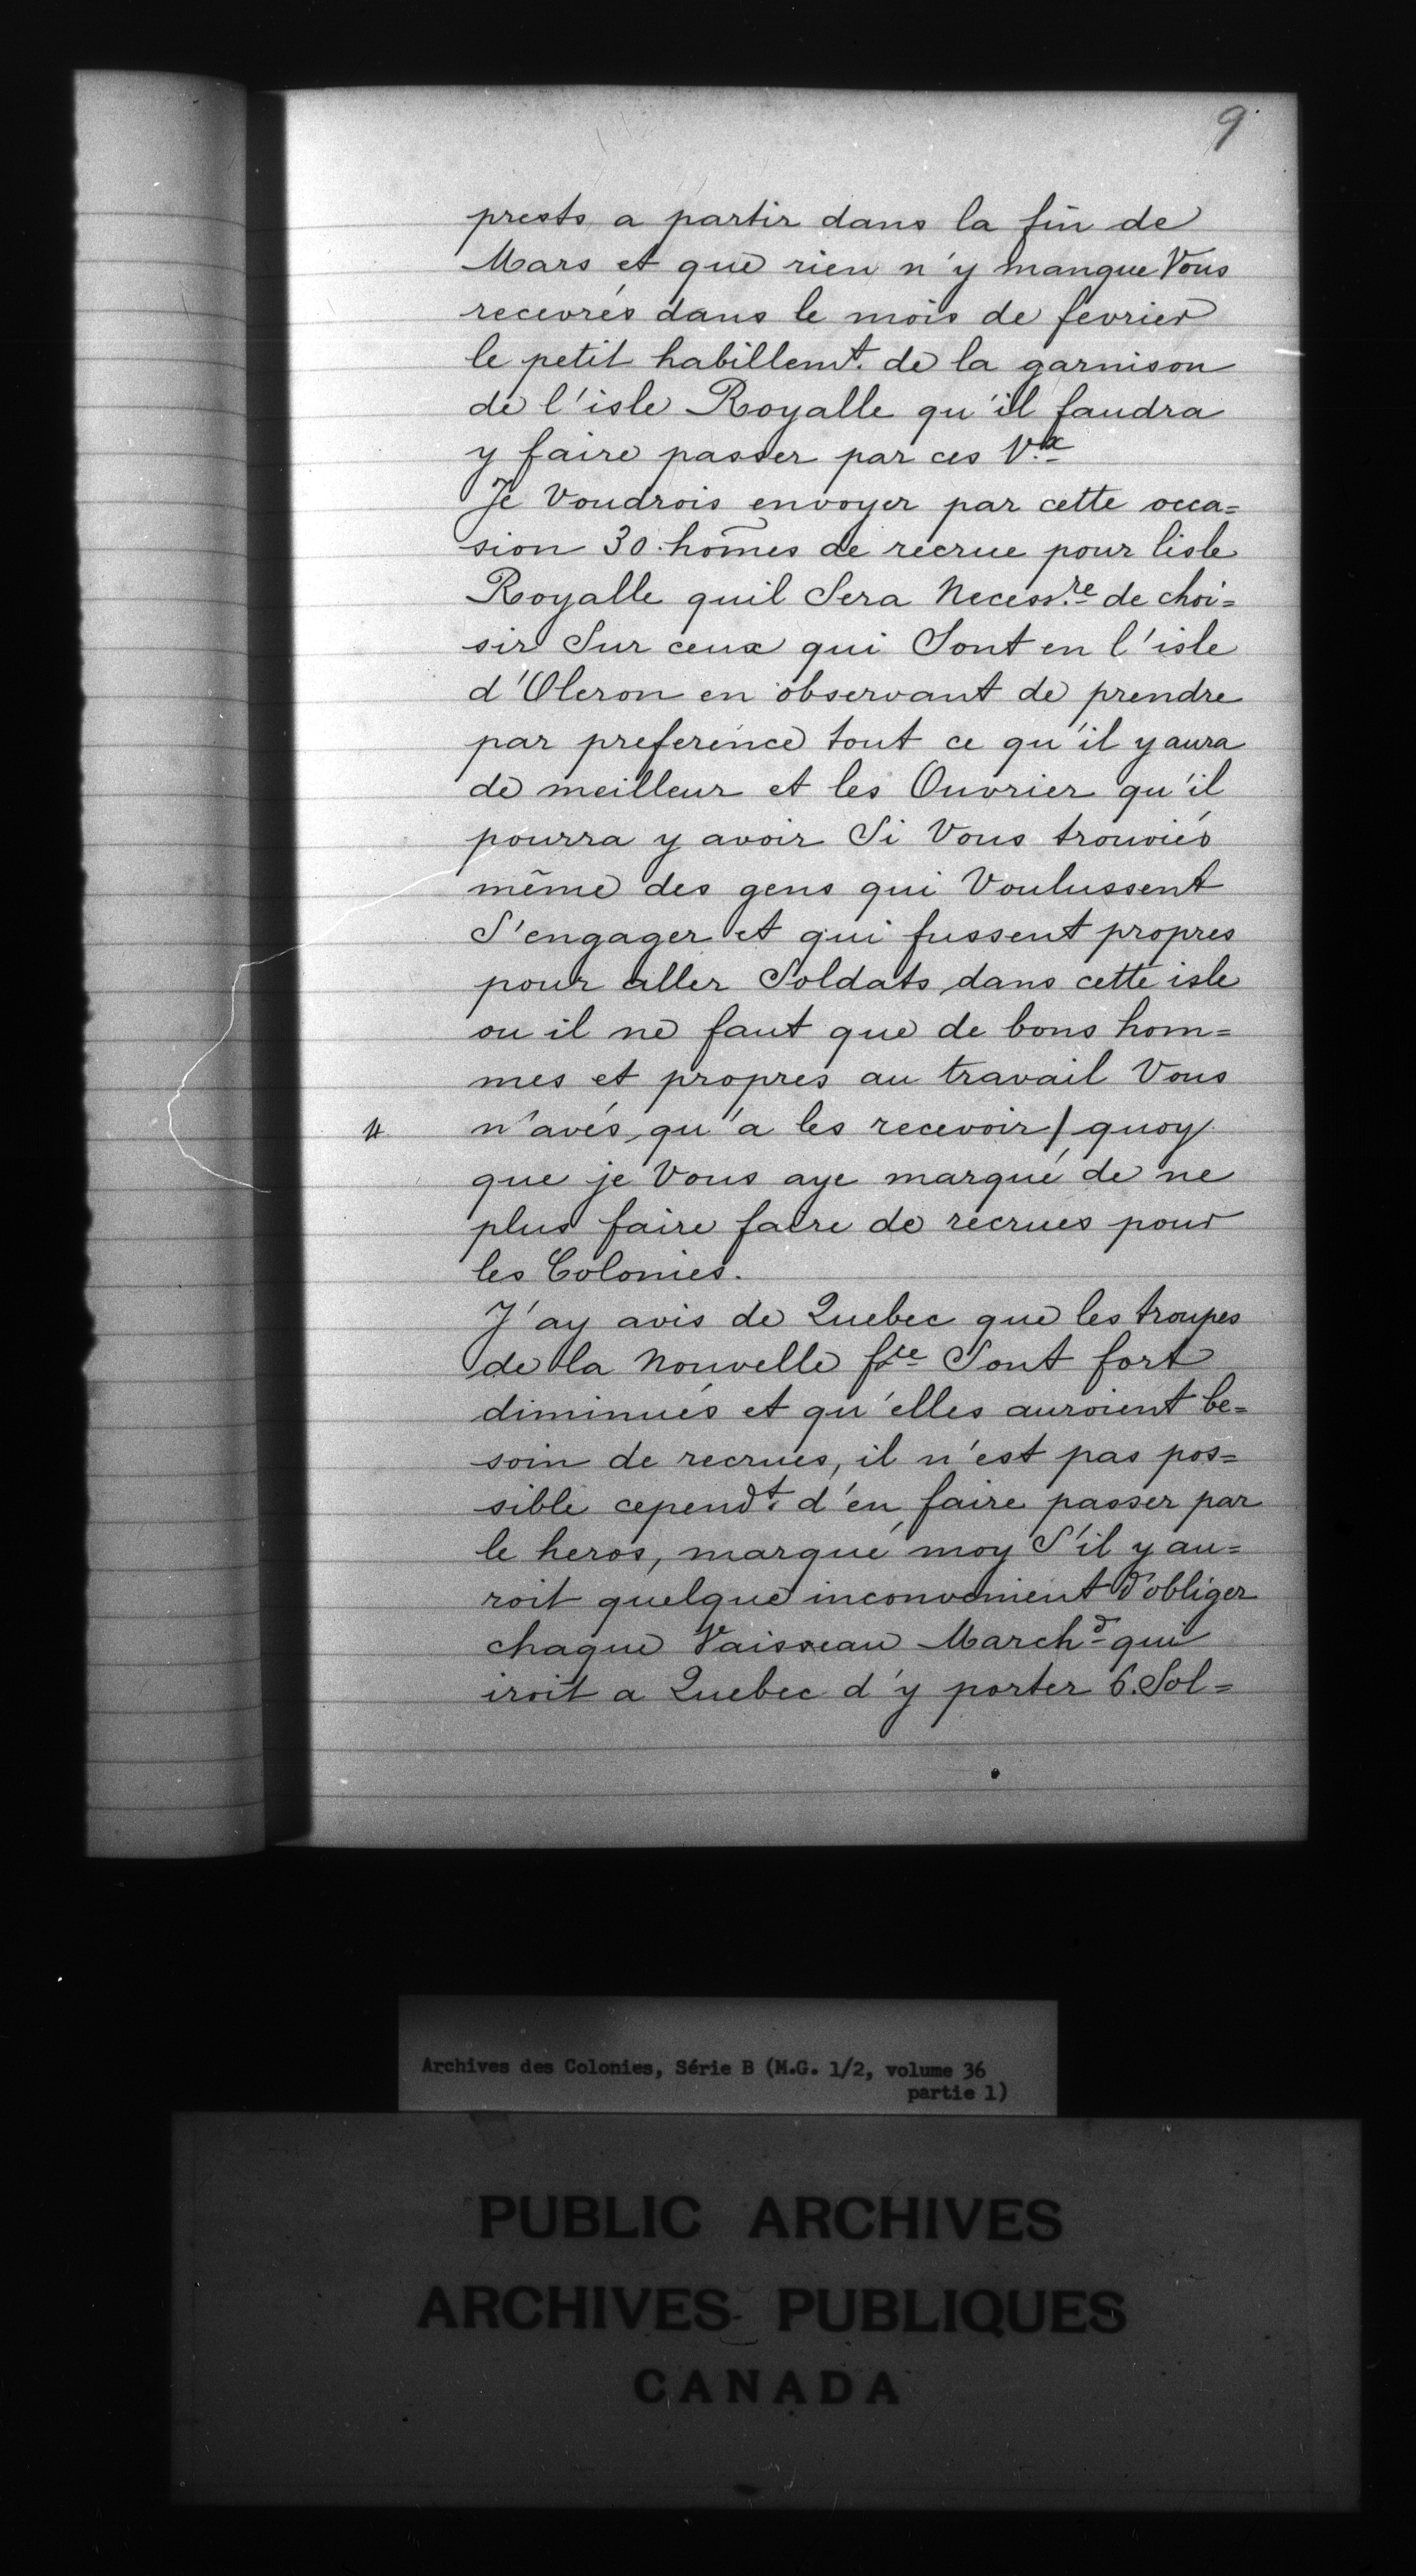 9
prests a partir dans la fin de
Mars et que rien n'y manque Vous
recevrés dans le mois de fevrier
le petit habillemt. de la garnison
de l'isle Royalle qu'il faudra
y faire passer par ces V.x
Je Voudrois envoyer par cette occa=
sion 30. hom̃es de recrue pour lisle
Royalle quil Sera Necess.re de choi=
sir Sur ceux qui Sont en l'isle
d'Oleron en observant de prendre
par preference tout ce qu'il y aura
de meilleur et les Ouvrier qu'il
pourra y avoir Si Vous trouviés
même des gens qui Voulussent
S'engager et qui fussent propres
pour aller Soldats dans cette isle
ou il ne faut que de bons hom=
mes et propres au travail Vous
4 n'avés qu'a les recevoir / quoy
que je Vous aye marqué de ne
plus faire faire de recrues pour
les Colonies.
J'ay avis de Quebec que les troupes
de la Nouvelle fce Sont fort
diminués et qu'elles auroient be=
soin de recrues, il n'est pas pos=
sible cependt. d'en faire passer par
le heros, marqué moy S'il y au=
roit quelque inconvenient d'obliger
chaque Vaisseau Marchd qui
iroit a Quebec d'y porter 6. Sol=
Archives des Colonies, Série B (M.G. 1/2, volume 36
partie 1)
PUBLIC ARCHIVES
ARCHIVES PUBLIQUES
CANADA